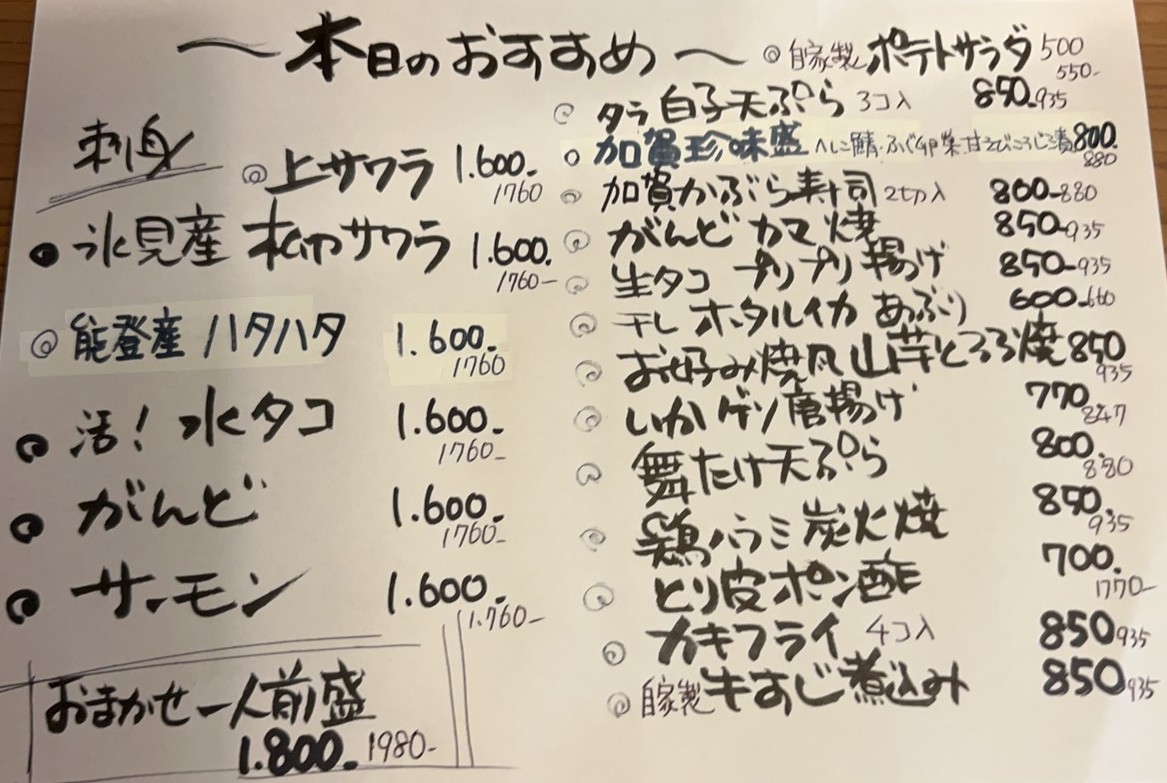 ～本日のおすすめ～
刺身
◎上サワラ 1.600.- 1760
●氷見産 本巾サワラ 1.600. 1760-
◎能登産 ハタハタ 1.600.- 1760
●活！水タコ 1.600.- 1760-
●がんど 1.600.- 1760-
●サーモン 1.600.- 1.760-
おまかせ一人前盛
1.800.- 1980-
◎自家製 ポテトサラダ 500 550-
◎タラ白子天ぷら 3コ入 850.- 935
○加賀珍味盛 へしこ鯖・ふぐ卵巣・甘えびこうじ漬 800. 880
◎加賀かぶら寿司 2切入 800-880
◎がんどカマ焼 850-935
◎生タコ プリプリ揚げ 850-935
◎干しホタルイカ あぶり 600-660
◎お好み焼風山芋とろろ焼 850 935
◎いかゲソ唐揚げ 770. 847
◎舞たけ天ぷら 800. 880
◎鶏ハラミ炭火焼 850. 935
◎とり皮ポン酢 700. 1770-
◎カキフライ 4コ入 850 935
◎自家製牛すじ煮込み 850 935